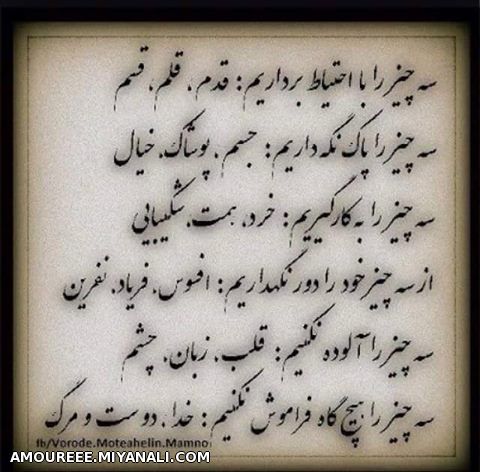 سه چیز را با احتیاط برداریم: قدم، قلم، قسم
سه چیز را پاک نگه داریم: جسم، پوشاک، خیال
سه چیز را به کار گیریم: خرد، همت، شکیبایی
از سه چیز خود را دور نگهداریم: افسوس، فریاد، نفرین
سه چیز را آلوده نکنیم: قلب، زبان، چشم
سه چیز را هیچ گاه فراموش نکنیم: خدا، دوست و مرگ
fb/Vorode.Moteahelin.Mamno
AMOUREEE.MIYANALI.COM